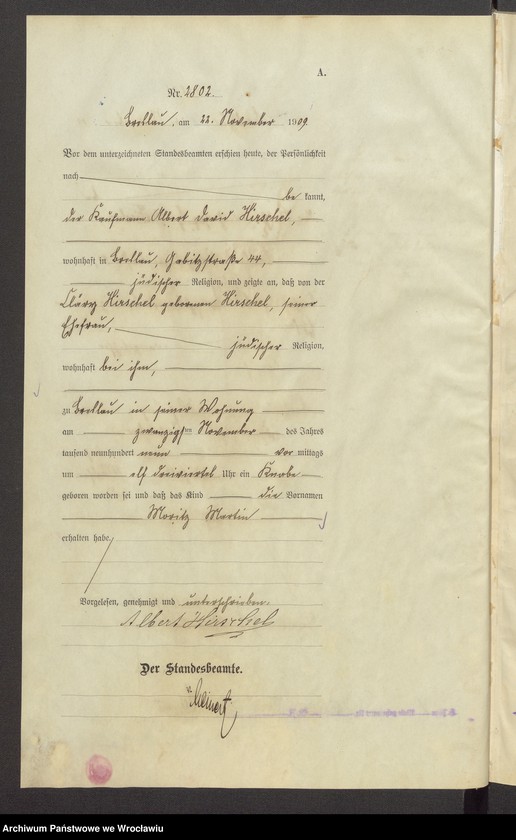 A.
Nr. 2802.
Breslau, am 22. November 1909
Vor dem unterzeichneten Standesbeamten erschien heute, der Persönlichkeit
nach
be kannt,
der Kaufmann Albert David Hirschel,
wohnhaft in Breslau, Gabitzstraße 44,
jüdischer Religion, und zeigte an, daß von der
Hirschel geborenen Hirschel, seiner
Ehefrau,
jüdischer Religion,
wohnhaft bei ihm,
zu Breslau in seiner Wohnung
am zwanzigsten November des Jahres
tausend neunhundert neun vor mittags
um elf dreiviertel Uhr ein Knabe
geboren worden sei und daß das Kind die Vornamen
Moritz Martin
erhalten habe.
Vorgelesen, genehmigt und unterschrieben.
Albert Hirschel
Der Standesbeamte.
Archiwum Państwowe we Wrocławiu